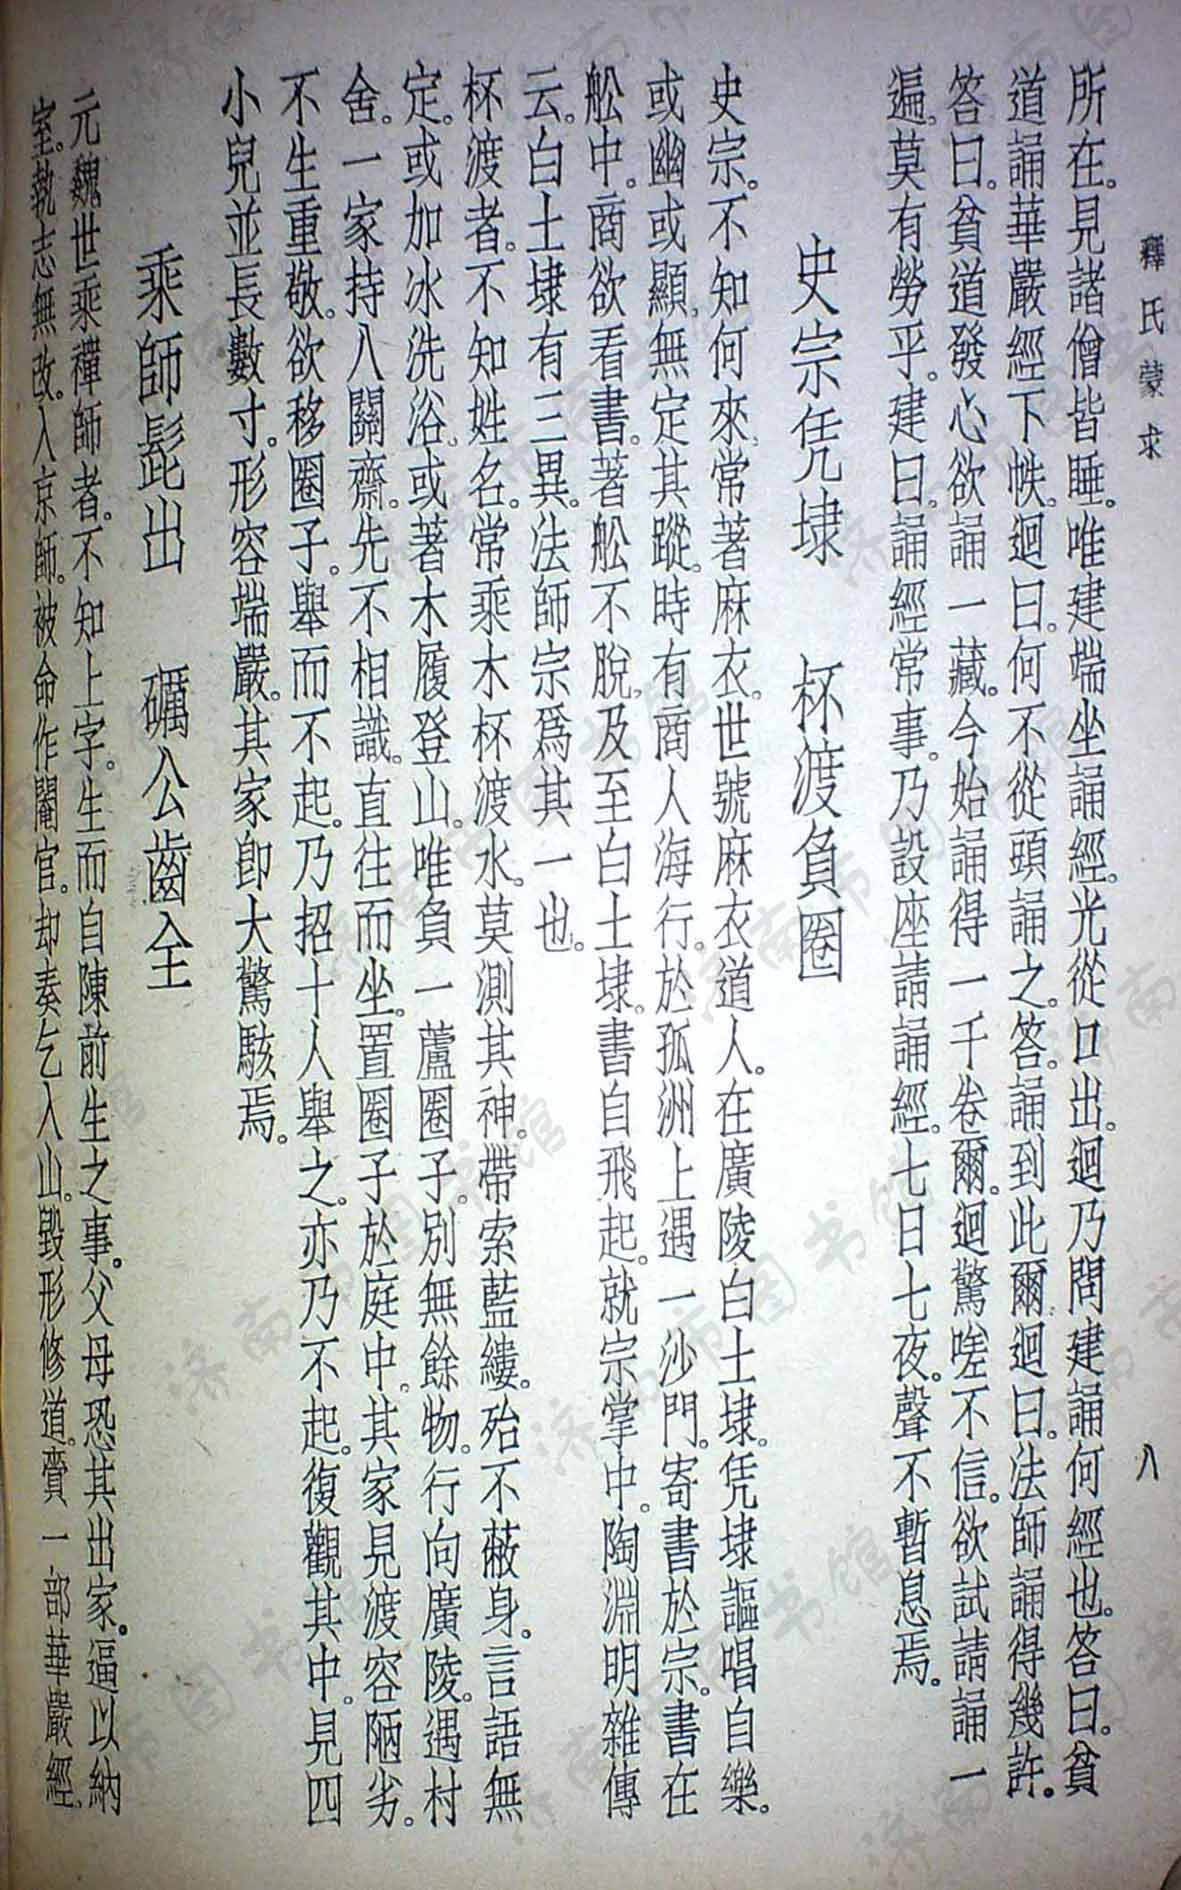 釋氏蒙求
八
所在。見諸僧皆睡。唯建端坐誦經。光從口出。迴乃問建誦何經也。答曰。貧
道誦華嚴經下帙。迴曰。何不從頭誦之。答。誦到此爾。迴曰。法師誦得幾許。
答曰。貧道發心欲誦一藏。今始誦得一千卷爾。迴驚嗟不信。欲試請誦一
遍。莫有勞乎。建曰。誦經常事。乃設座請誦經。七日七夜。聲不暫息焉。
史宗凭埭 杯渡負圈
史宗。不知何來。常著麻衣。世號麻衣道人。在廣陵白土埭。凭埭謳唱自樂。
或幽或顯。無定其蹤。時有商人海行。於孤洲上遇一沙門。寄書於宗。書在
舩中。商欲看書。著舩不脫。及至白土埭。書自飛起。就宗掌中。陶淵明雜傳
云。白土埭有三異。法師宗爲其一也。
杯渡者。不知姓名。常乘木杯渡水。莫測其神。帶索藍縷。殆不蔽身。言語無
定。或加冰洗浴。或著木履登山。唯負一蘆圈子。別無餘物。行向廣陵。遇村
舍。一家持八關齋。先不相識。直往而坐。置圈子於庭中。其家見渡容陋劣。
不生重敬。欲移圈子。舉而不起。乃招十人舉之。亦乃不起。復觀其中。見四
小兒並長數寸。形容端嚴。其家卽大驚駭焉。
乘師髭出 礪公齒全
元魏世乘禪師者。不知上字。生而自陳前生之事。父母恐其出家。逼以納
室。執志無改。入京師。被命作閹官。却奏乞入山。毀形修道。賫一部華嚴經。